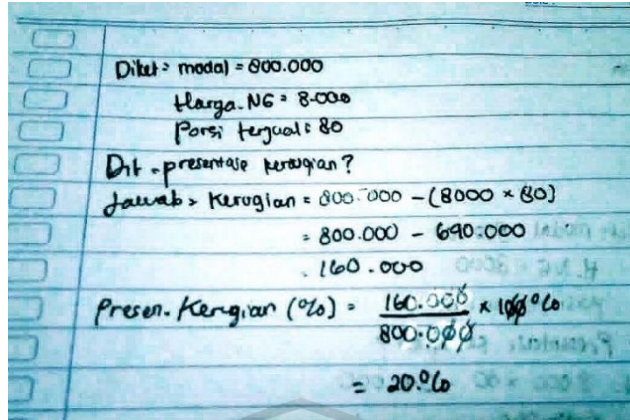 Diket : modal = 800.000
Harga. NG = 8.000
Porsi terjual : 80
Dit . presentase kerugian ?
Jawab > Kerugian = 800.000 - (8000 × 80)
= 800.000 - 640.000
= 160.000
Presen. Kerugian (%) = 160.000 / 800.000 × 100%
= 20%